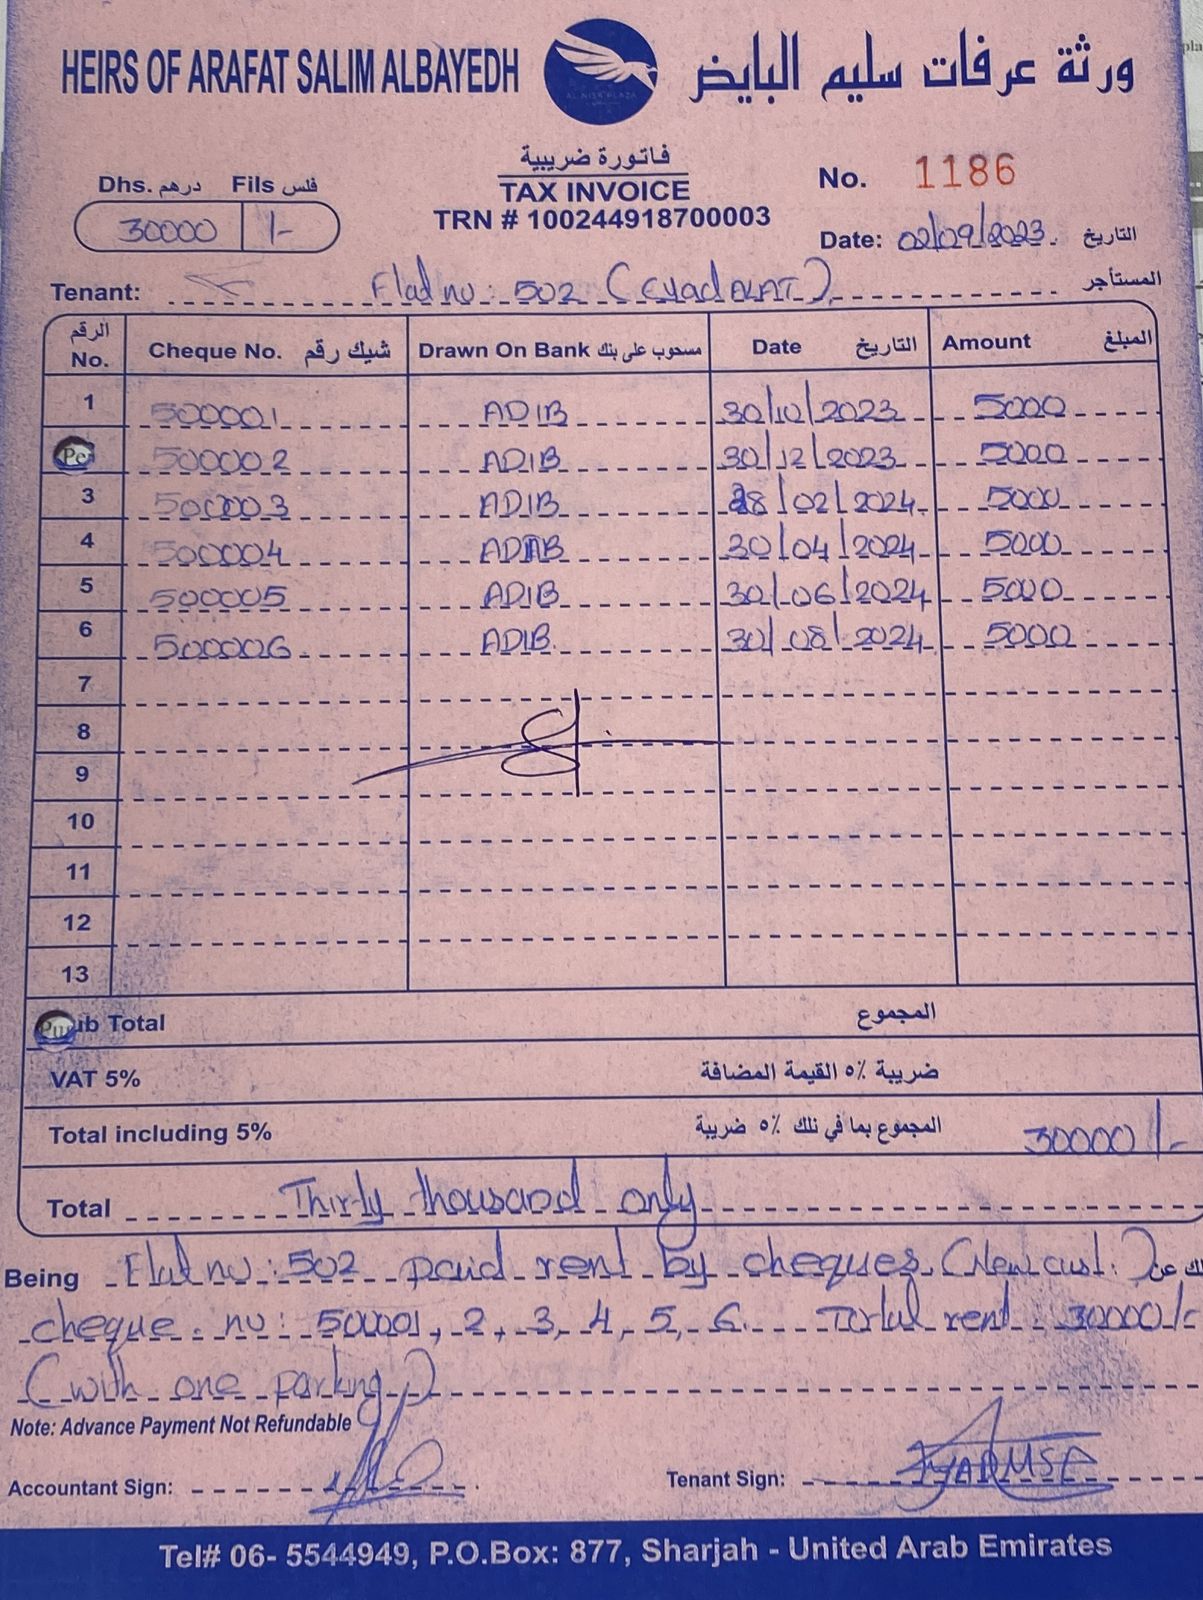 HEIRS OF ARAFAT SALIM ALBAYEDH ورثة عرفات سليم البايض
AL NISR PLAZA
فاتورة ضريبية
TAX INVOICE
TRN # 100244918700003
Dhs. درهم Fils فلس
30000 /-
No. 1186
Date: 02/09/2023 التاريخ
Tenant: Flat no: 502 (EyadALAT) المستأجر
الرقم No. Cheque No. شيك رقم Drawn On Bank مسحوب على بنك Date التاريخ Amount المبلغ
1 500001 ADIB 30/10/2023 5000
Pe 500002 ADIB 30/12/2023 5000
3 500003 ADIB 28/02/2024 5000
4 500004 ADIB 30/04/2024 5000
5 500005 ADIB 30/06/2024 5000
6 500006 ADIB 30/08/2024 5000
7
8
9
10
11
12
13
Pu ub Total المجموع
VAT 5% ضريبة ٥٪ القيمة المضافة
Total including 5% المجموع بما في ذلك ٥٪ ضريبة 30000/-
Total Thirty thousand only
Being Flat no: 502 paid rent by cheques (New cust.) لك عن
cheque no: 500001, 2, 3, 4, 5, 6. Total rent: 30000/-
(with one parking)
Note: Advance Payment Not Refundable
Accountant Sign: Tenant Sign:
Tel# 06- 5544949, P.O.Box: 877, Sharjah - United Arab Emirates